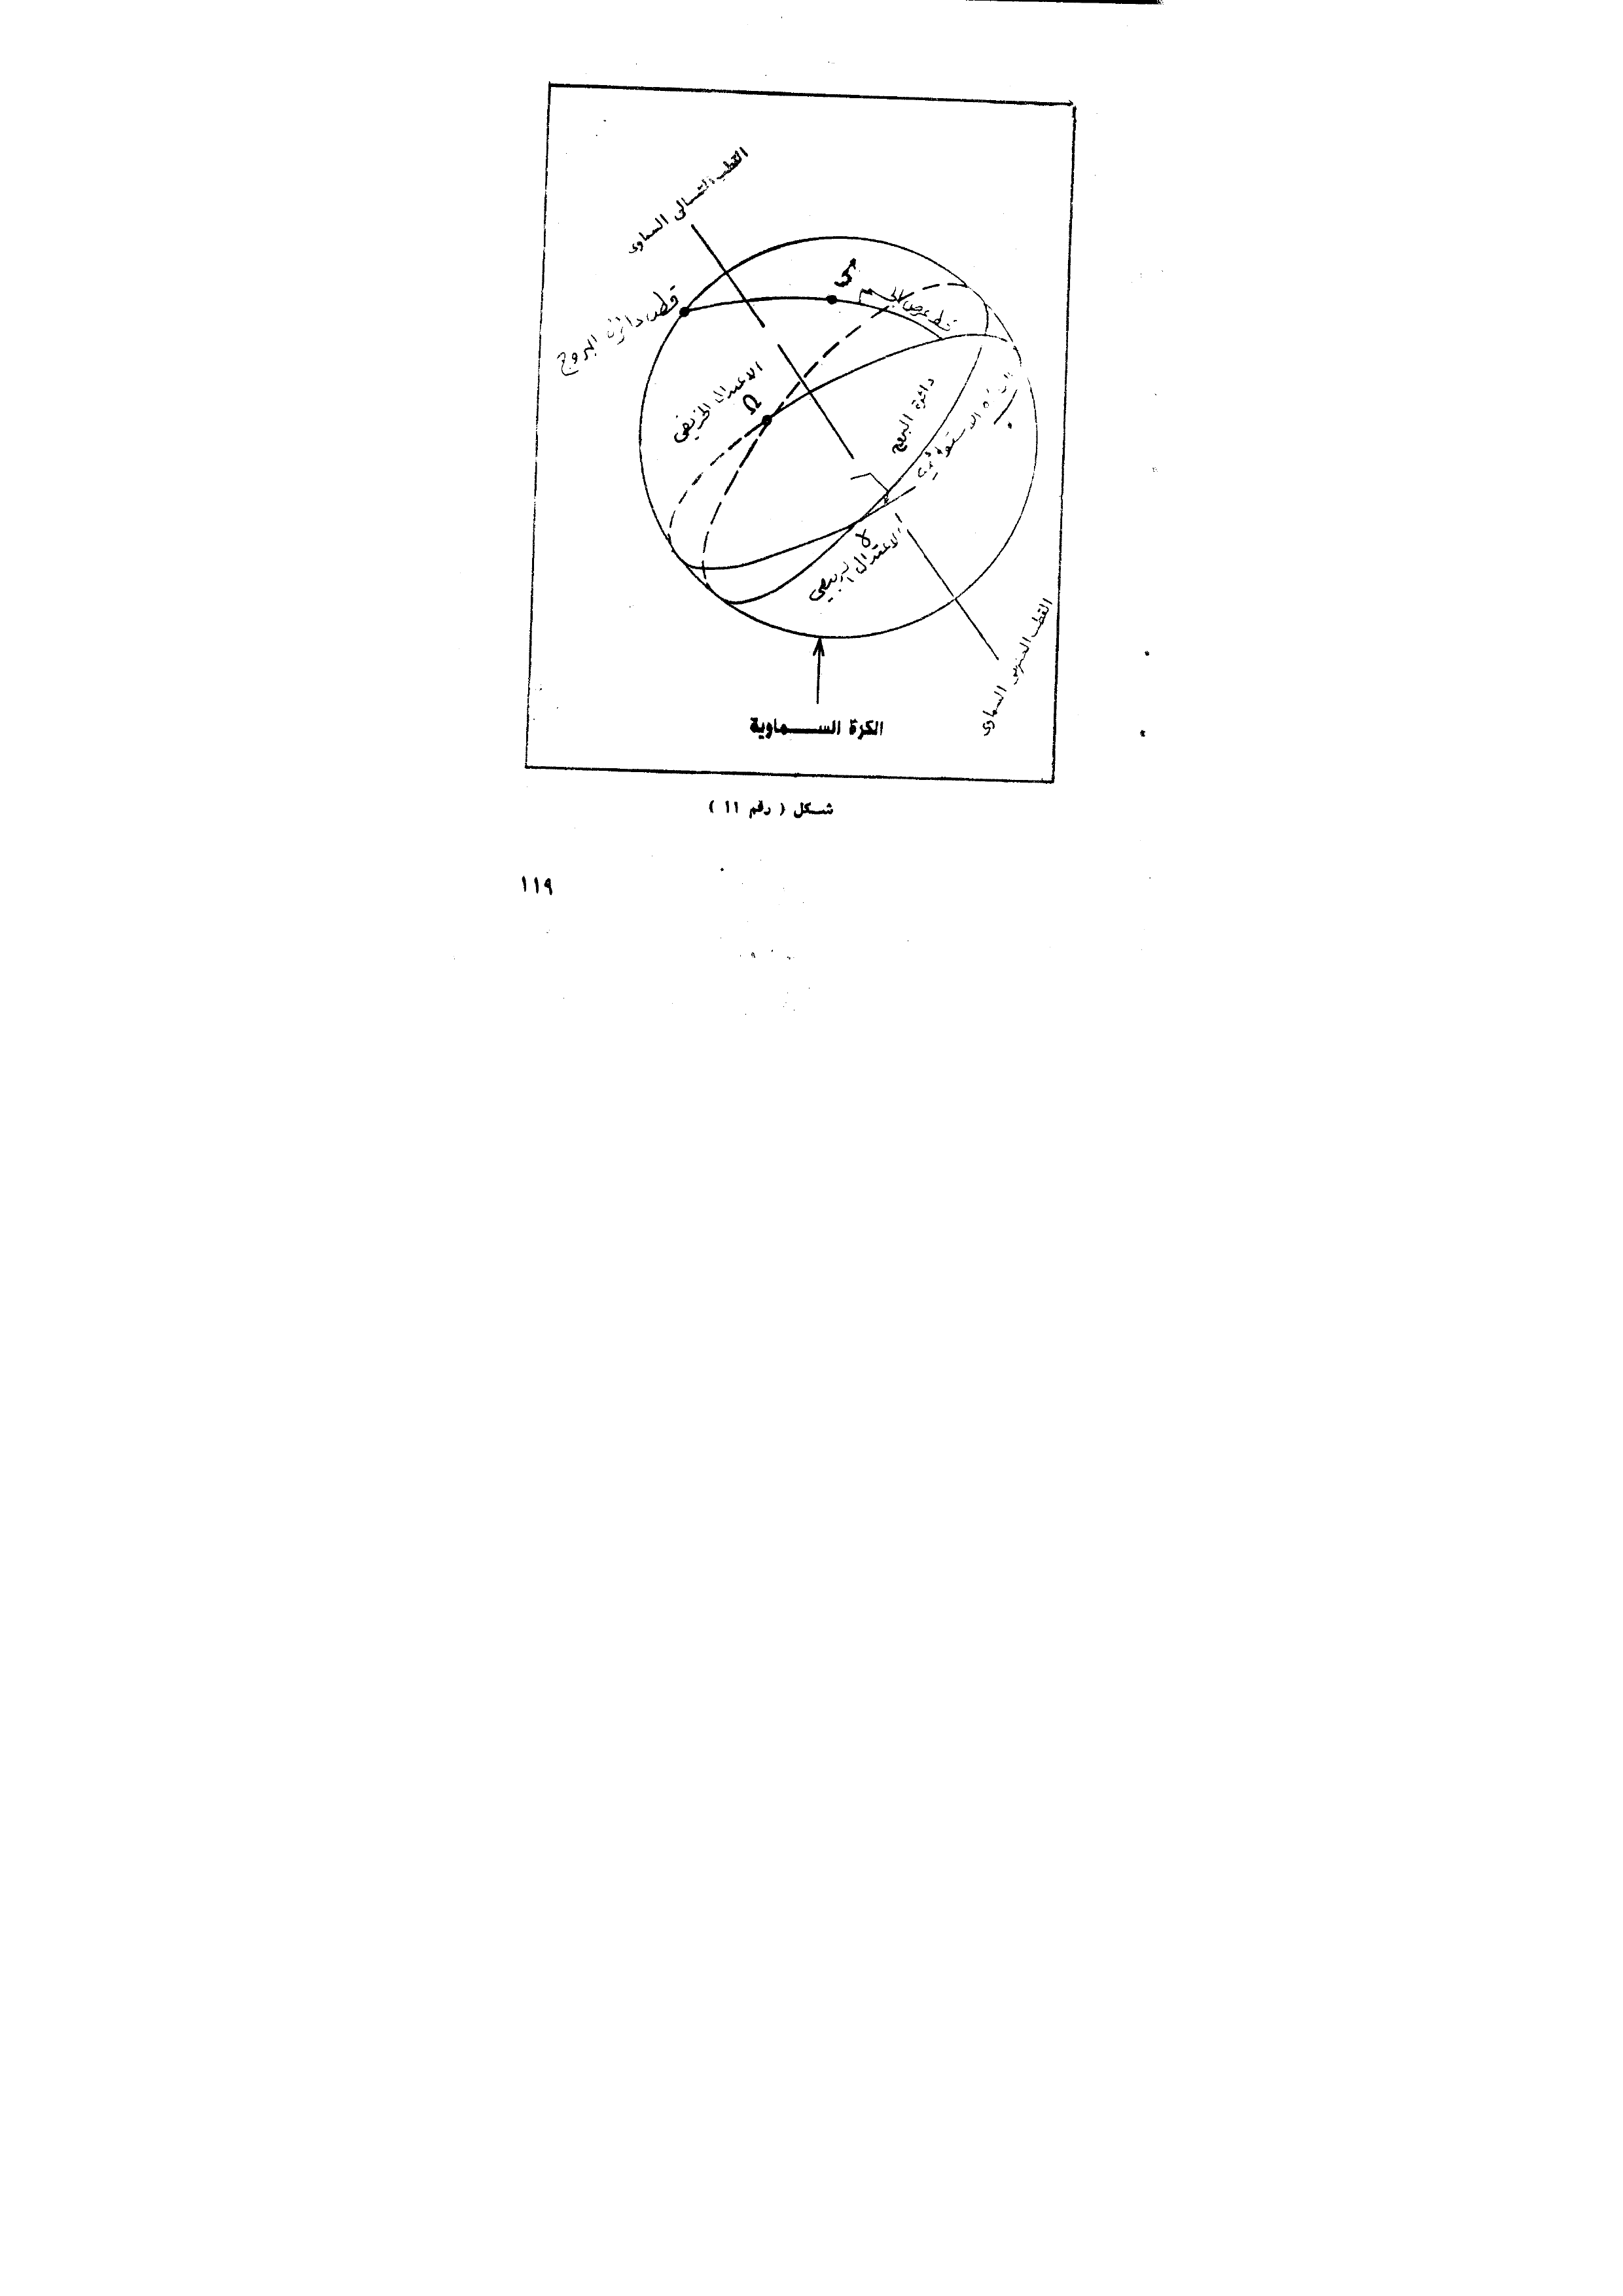 القطب الشمالى السماوى
قطب دائرة البروج
خط عرض
الاعتدال الخريفى
Ω
دائرة البروج
الاستوائية
γ
الاعتدال الربيعى
القطب الجنوبى السماوى
الكرة الســـماوية
شـكل ( رقم ١١ )
١١٩